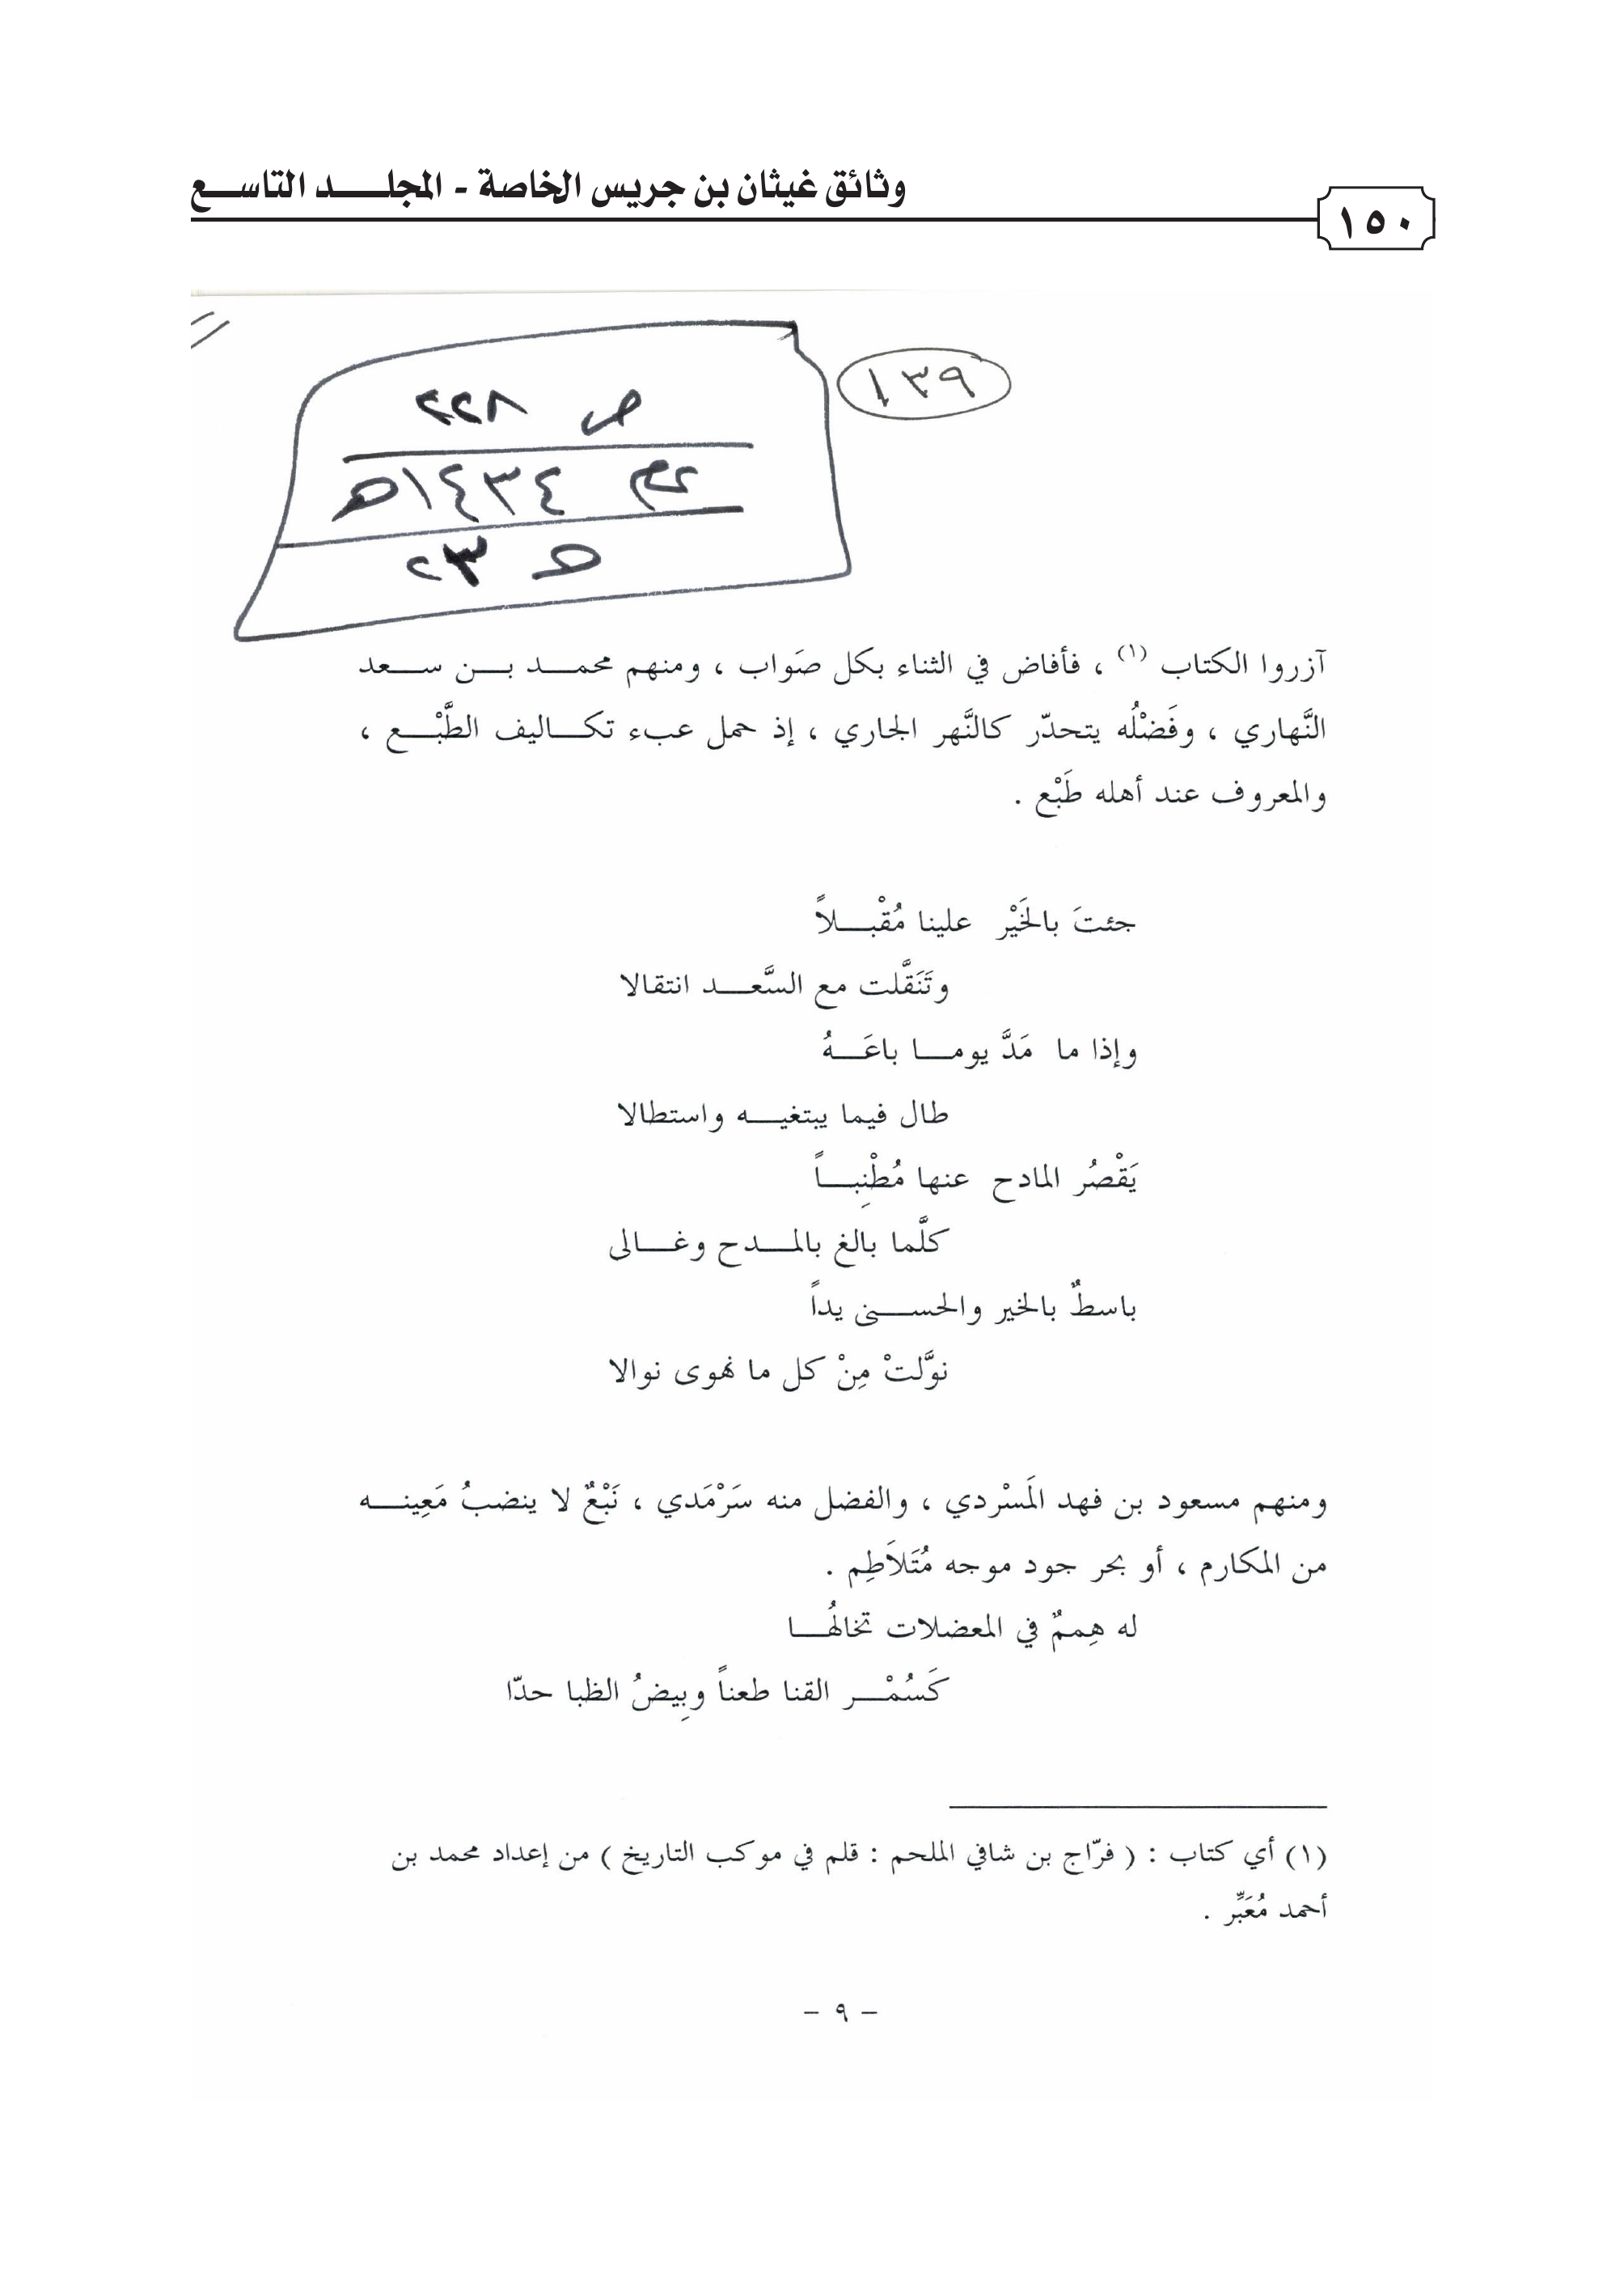 وثائق غيثان بن جريس الخاصة - المجلـــــد التاســـع
١٥٠
١٣٩
ص ٢٢٨
١٤٣٤هـ
هـ ٢٣
آزروا الكتاب (١) ، فأفاض في الثناء بكل صَواب ، ومنهم محمـــد بـــن ســـعد
النَّهاري ، وفَضْلُه يتحدّر كالنَّهر الجاري ، إذ حمل عبء تكـــاليف الطَّبْـــع ،
والمعروف عند أهله طَبْع .
جئتَ بالخَيْر علينا مُقْبـــلاً
وتَنَقَّلت مع السَّعـــد انتقالا
وإذا ما مَدَّ يومـــا باعَـــهُ
طال فيما يبتغيـــه واستطالا
يَقْصُر المادح عنها مُطْنِبـــاً
كلَّما بالغ بالمـــدح وغـــالى
باسطٌ بالخير والحســـنى يداً
نوَّلتْ مِنْ كل ما نهوى نوالا
ومنهم مسعود بن فهد المَسْردي ، والفضل منه سَرْمَدي ، نَبْعٌ لا ينضبُ مَعِينـــه
من المكارم ، أو بحر جود موجه مُتَلاَطِم .
له هِممٌ في المعضلات تخالهُـــا
كَسُمْـــر القنا طعناً وبِيضُ الظبا حدّا
(١) أي كتاب : ( فرّاج بن شافي الملحم : قلم في موكب التاريخ ) من إعداد محمد بن
أحمد مُعَبِّر .
- ٩ -